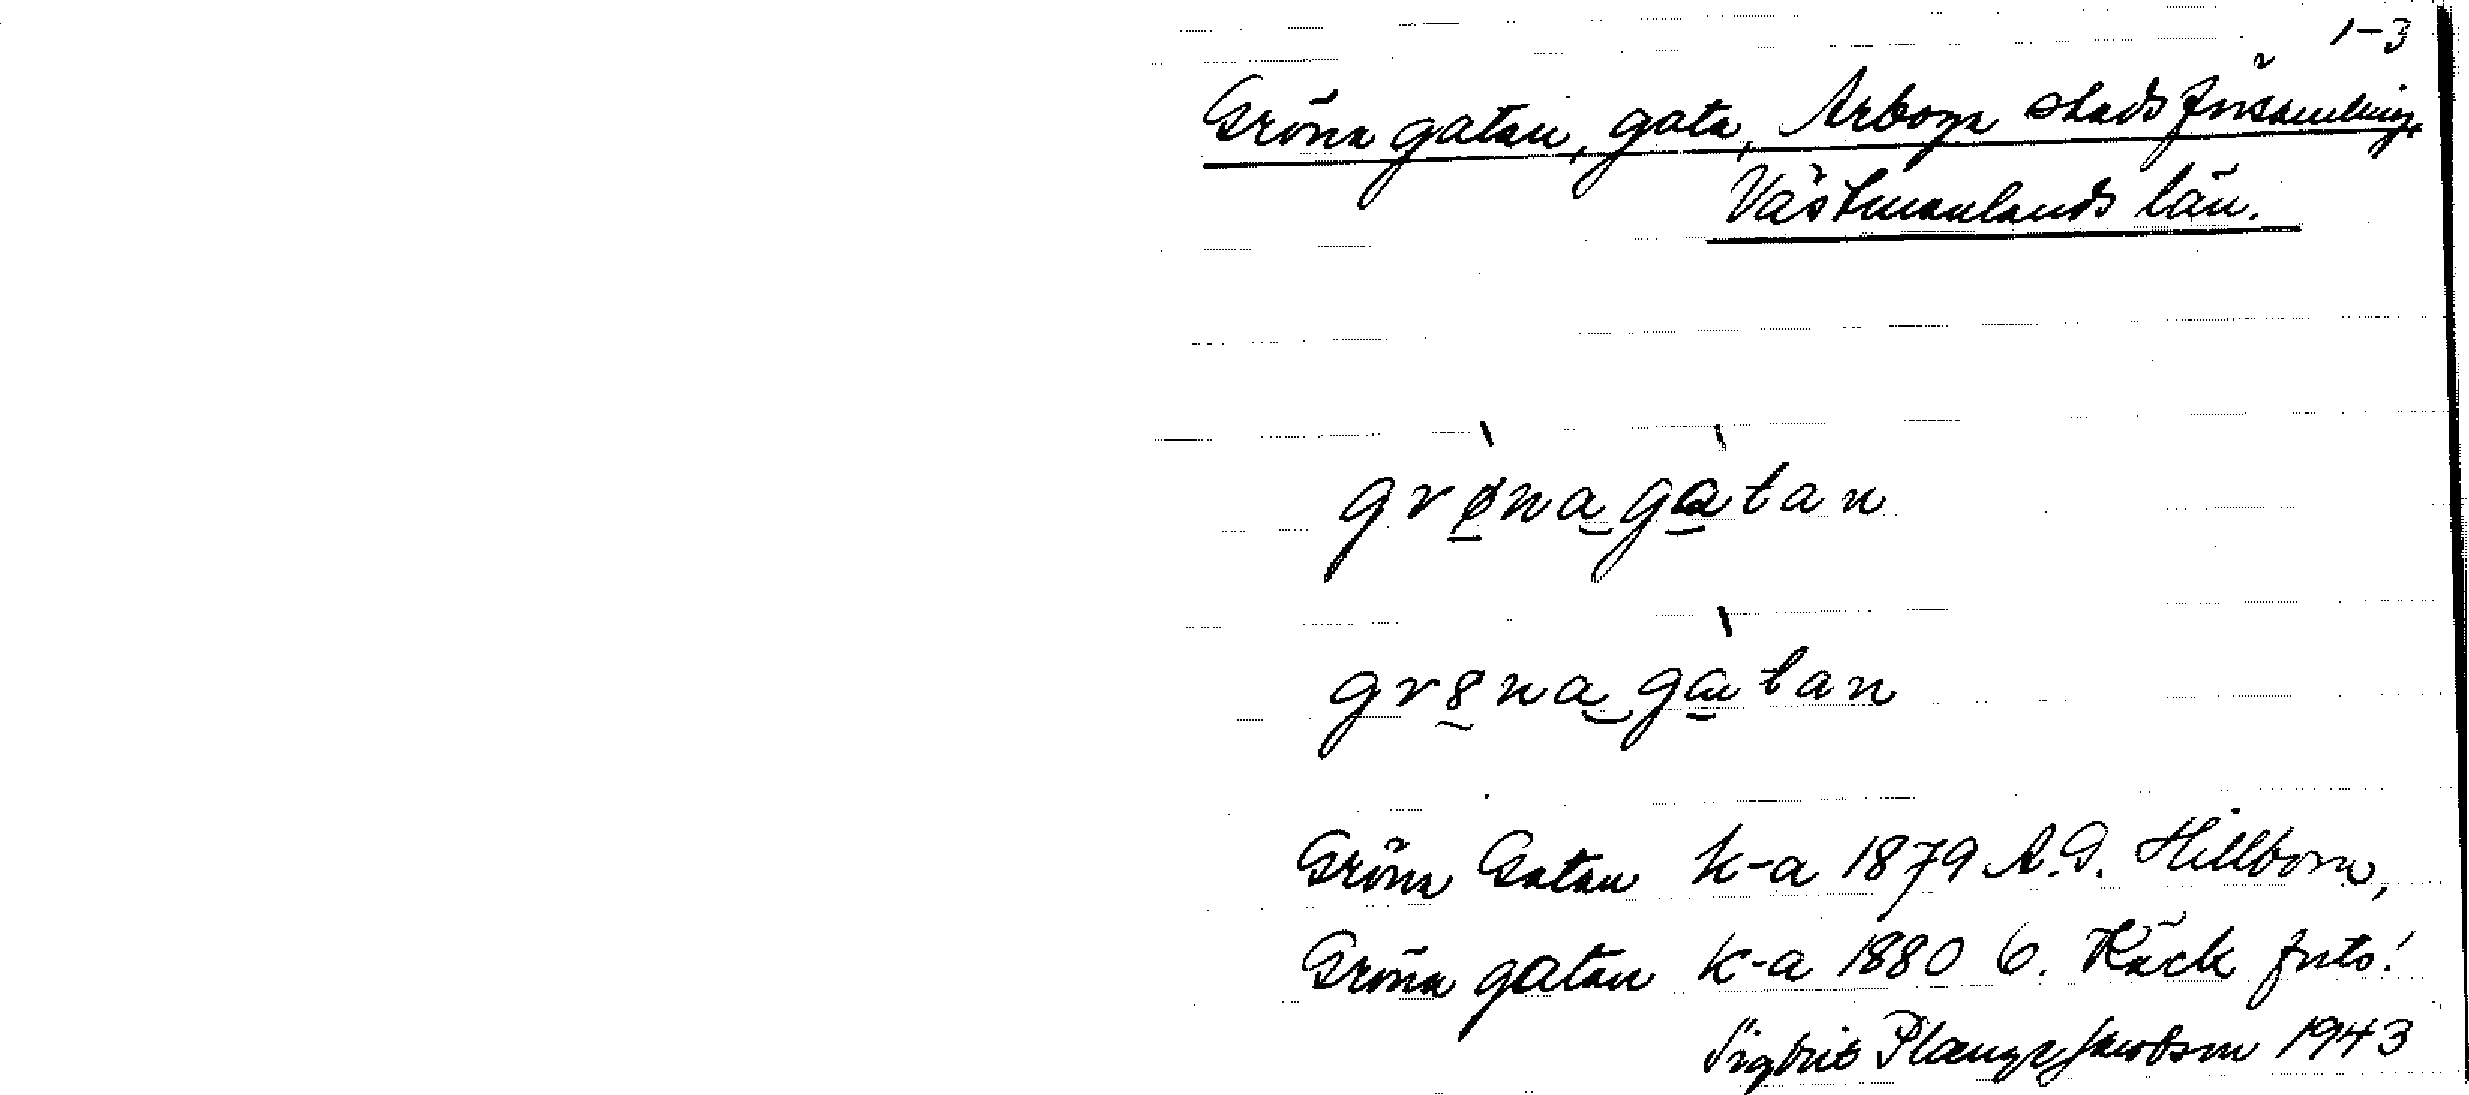 1-3
Gröna gatan, gata, Arboga stadsförsamling,
Västmanlands län.
grø̀nagàtan
gr8nagàtan
Gröna Gatan k-a 1879 A.G. Hillbom,
Gröna gatan k-a 1880 O. Käck forts!
Sigbrit Plænge Jacobson 1943